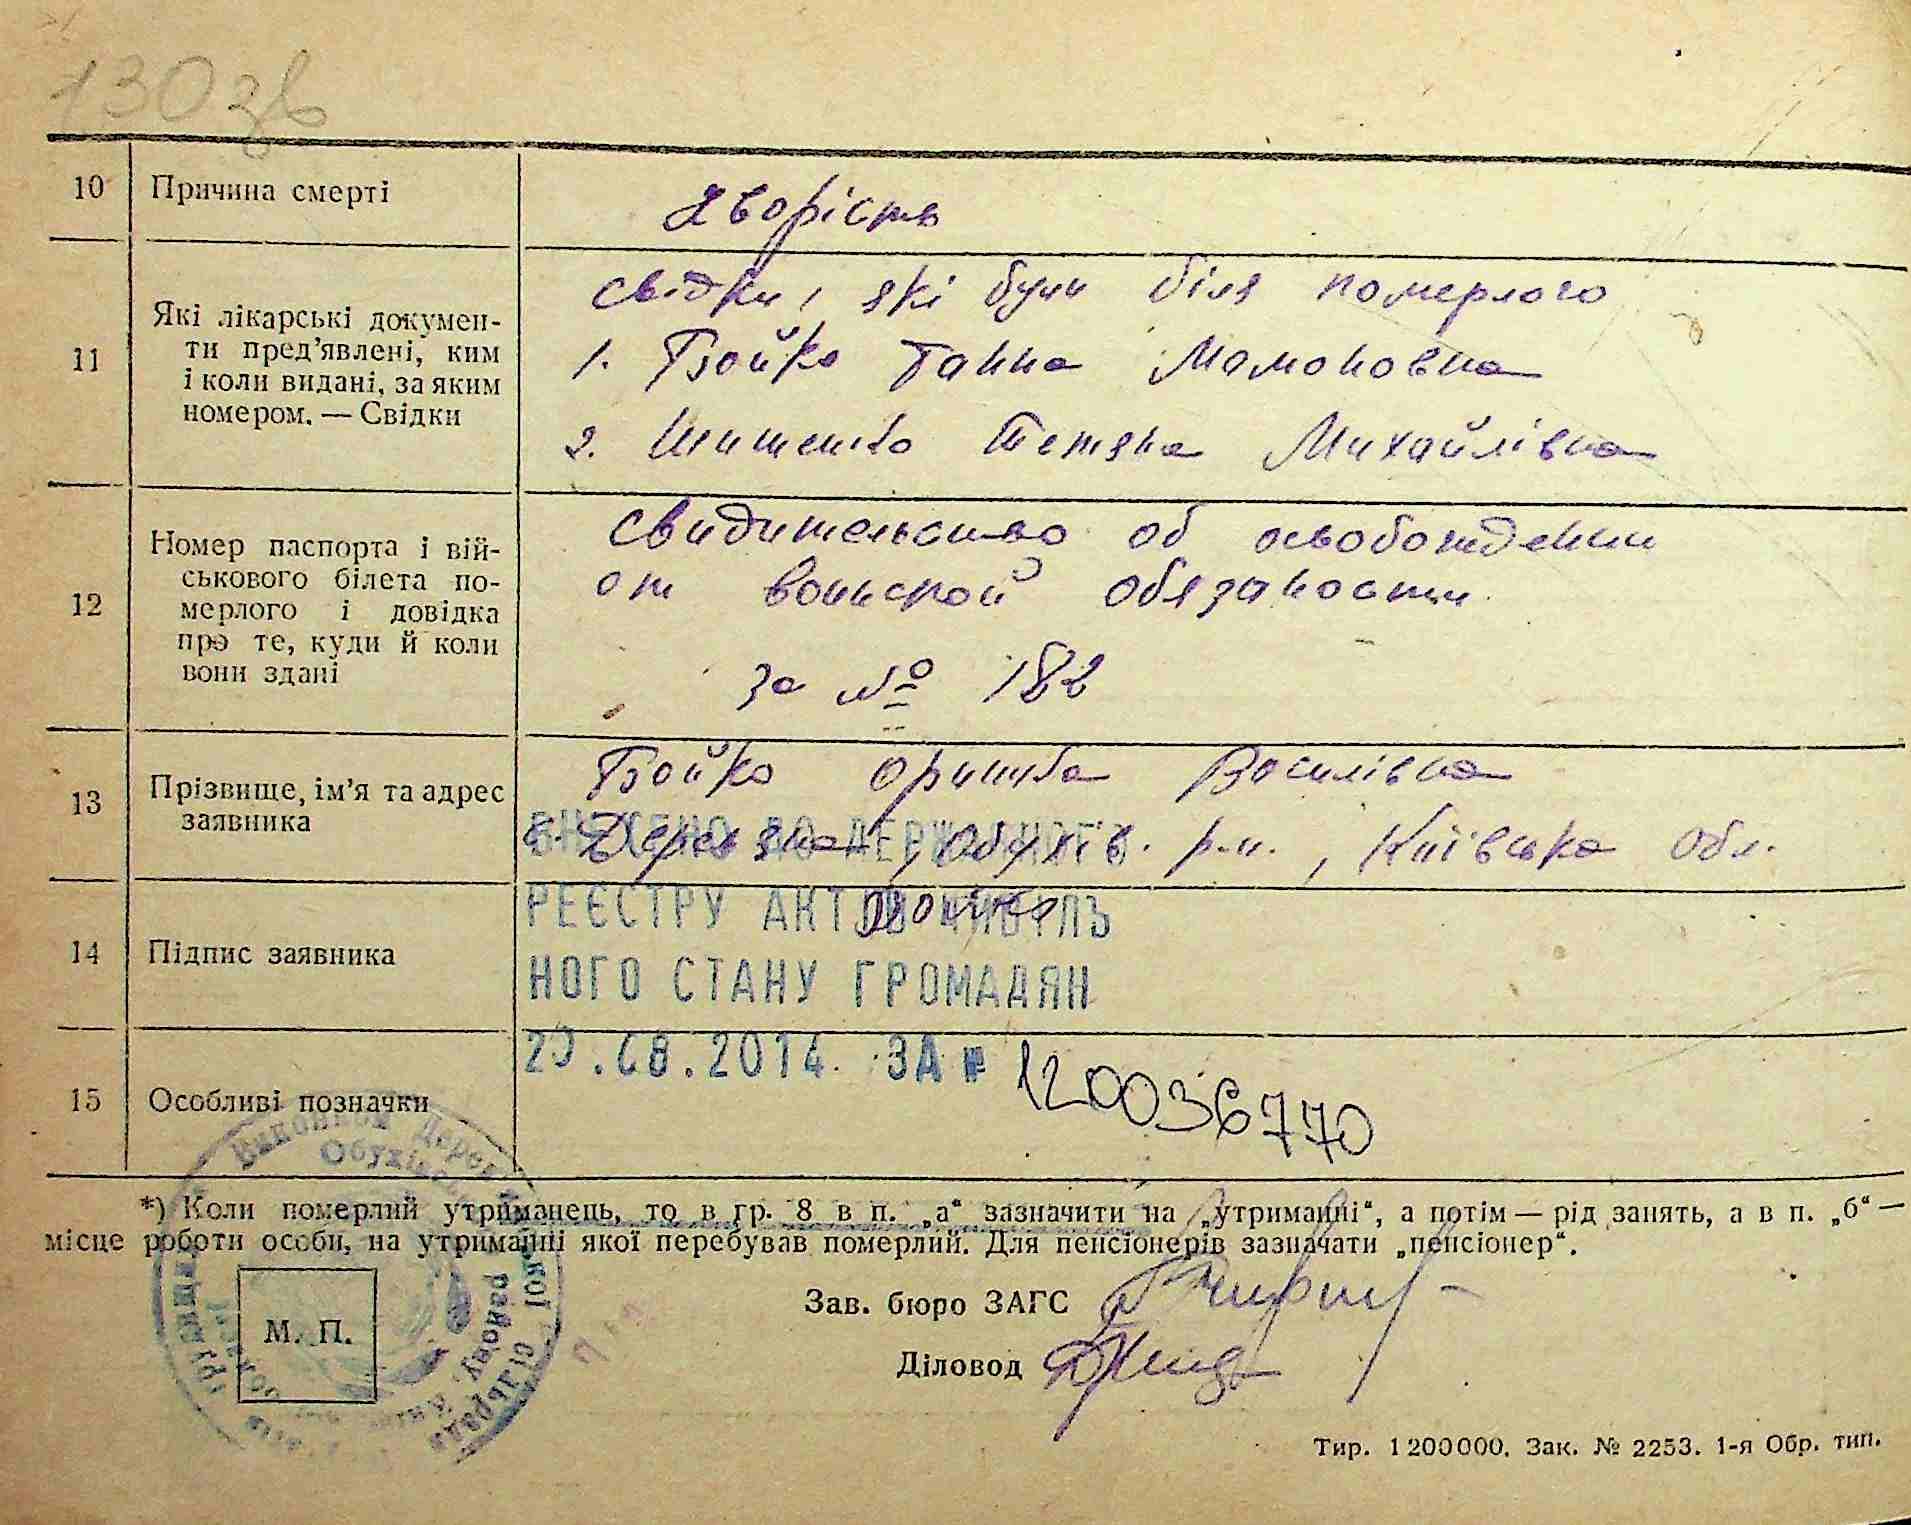 130 зв
10 Причина смерті
хворість
11 Які лікарські докумен-
ти пред'явлені, ким
і коли видані, за яким
номером. — Свідки
свідки, які були біля померлого
1. Бойко Ганна Мамоновна
2. Шишенко Тетяна Михайлівна
12 Номер паспорта і вій-
ськового білета по-
мерлого і довідка
про те, куди й коли
вони здані
свидительство об освобождении
от воинской обязаности
за № 182
13 Прізвище, ім'я та адрес
заявника
Бойко Оришка Василівна
с. Деревяна, Обухів. р-н., Київська обл.
ВНЕСЕНО ДО ДЕРЖАВНОГО
РЕЄСТРУ АКТІВ ЦИВІЛЬ
НОГО СТАНУ ГРОМАДЯН
.08.2014 ЗА № 12 00036770
14 Підпис заявника
Бойко
15 Особливі позначки
*) Коли померлий утриманець, то в гр. 8 в п. „а“ зазначити на „утриманні“, а потім — рід занять, а в п. „б“ —
місце роботи особи, на утриманні якої перебував померлий. Для пенсіонерів зазначати „пенсіонер“.
Зав. бюро ЗАГС
М. П.
Діловод
Тир. 1200000. Зак. № 2253. 1-я Обр. тип.